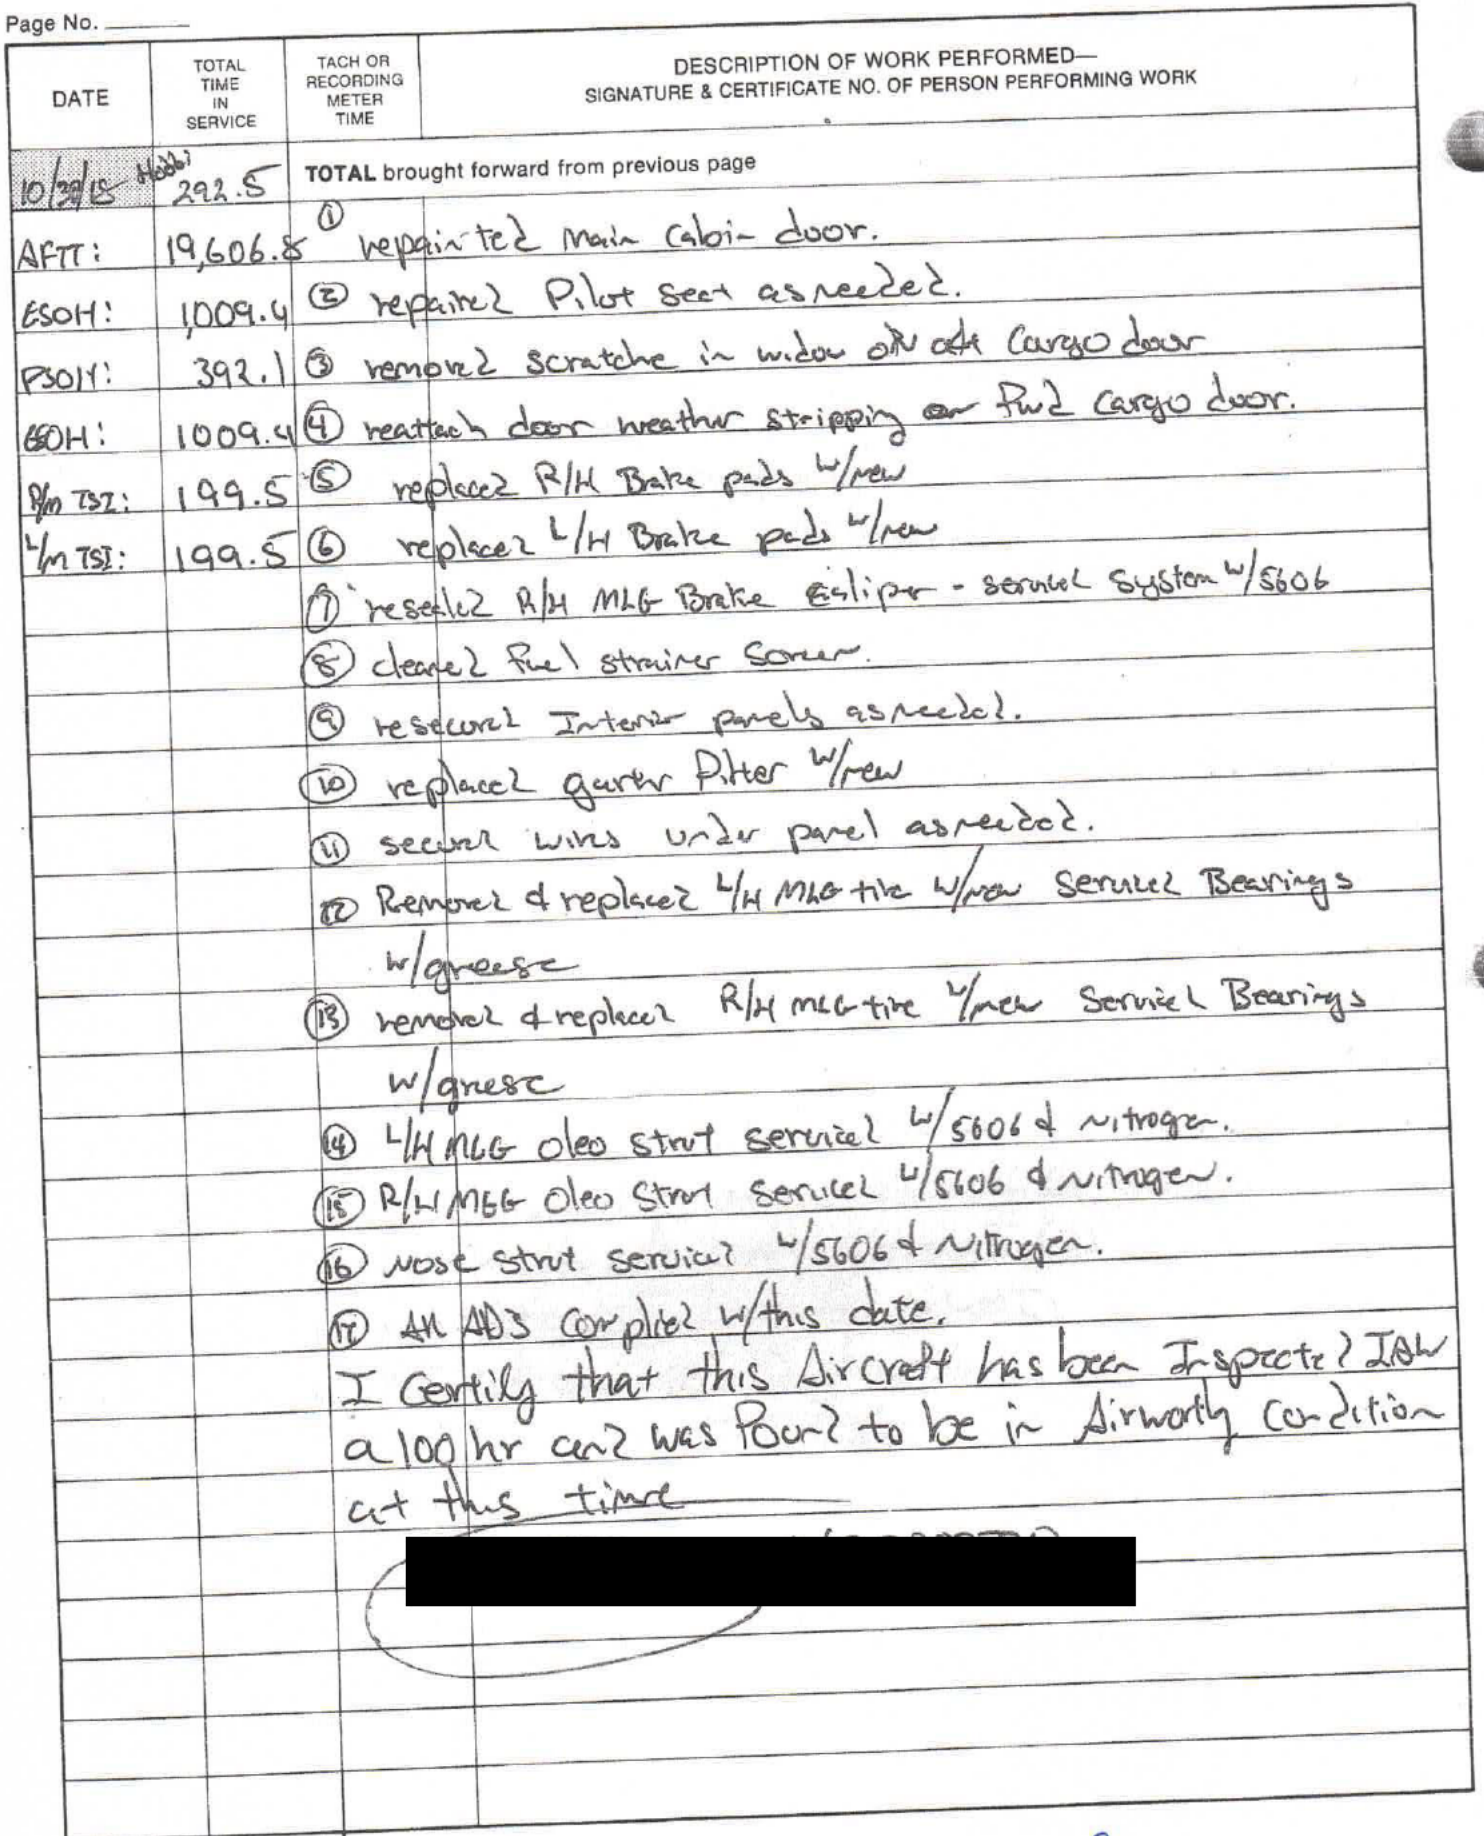 Page No.
DATE
TOTAL TIME IN SERVICE
TACH OR RECORDING METER TIME
DESCRIPTION OF WORK PERFORMED—
SIGNATURE & CERTIFICATE NO. OF PERSON PERFORMING WORK
10/29/15 Hobbs 292.5 TOTAL brought forward from previous page
AFTT: 19,606.8 ① repainted Main Cabin door.
ESOH: 1,009.4 ② repaired Pilot Seat as needed.
PSOH: 392.1 ③ removed scratche in widow on aft Cargo door
GSOH: 1009.4 ④ reattach door weather stripping on fwd cargo door.
R/m TSI: 199.5 ⑤ replaced R/H Brake pads w/new
L/m TSI: 199.5 ⑥ replaced L/H Brake pads w/new
⑦ resealed R/H MLG Brake Caliper - serviced System w/5606
⑧ cleaned fuel strainer Screen.
⑨ resecured Interior panels as needed.
⑩ replaced garter filter w/new
⑪ secured wires under panel as needed.
⑫ Removed & replaced L/H MLG tire w/new Serviced Bearings
w/grease
⑬ removed & replaced R/H MLG tire w/new Serviced Bearings
w/grease
⑭ L/H MLG oleo strut serviced w/5606 & Nitrogen.
⑮ R/H MLG Oleo Strut Serviced w/5606 & Nitrogen.
⑯ Nose Strut serviced w/5606 & Nitrogen.
⑰ All ADs complied w/this date.
I Certify that this Aircraft has been Inspected IAW
a 100 hr and was found to be in Airworthy Condition
at this time